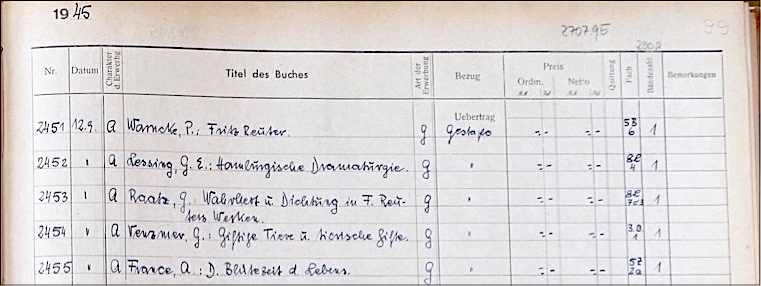 1945
270795
99
Nr. Datum Charakter d. Erwerbg Titel des Buches Art der Erwerbung Bezug Preis Ordin. Netto Quittung Fach Bändezahl Bemerkungen
Uebertrag
2451 12.9. A Warncke, P.: Fritz Reuter. g Gestapo =.- =.- 5B 6 1
2452 " A Lessing, G. E.: Hamburgische Dramaturgie. g " =.- =.- 8L 4 1
2453 " A Raatz, G.: Wahrheit u. Dichtung in F. Reu- g " =.- =.- 1
ters Werken.
2454 " A Venzmer, G.: Giftige Tiere u. tierische Gifte. g " =.- =.- 1
2455 " A France, A.: D. Blütezeit d. Lebens. g " =.- =.- 5Z 2a 1